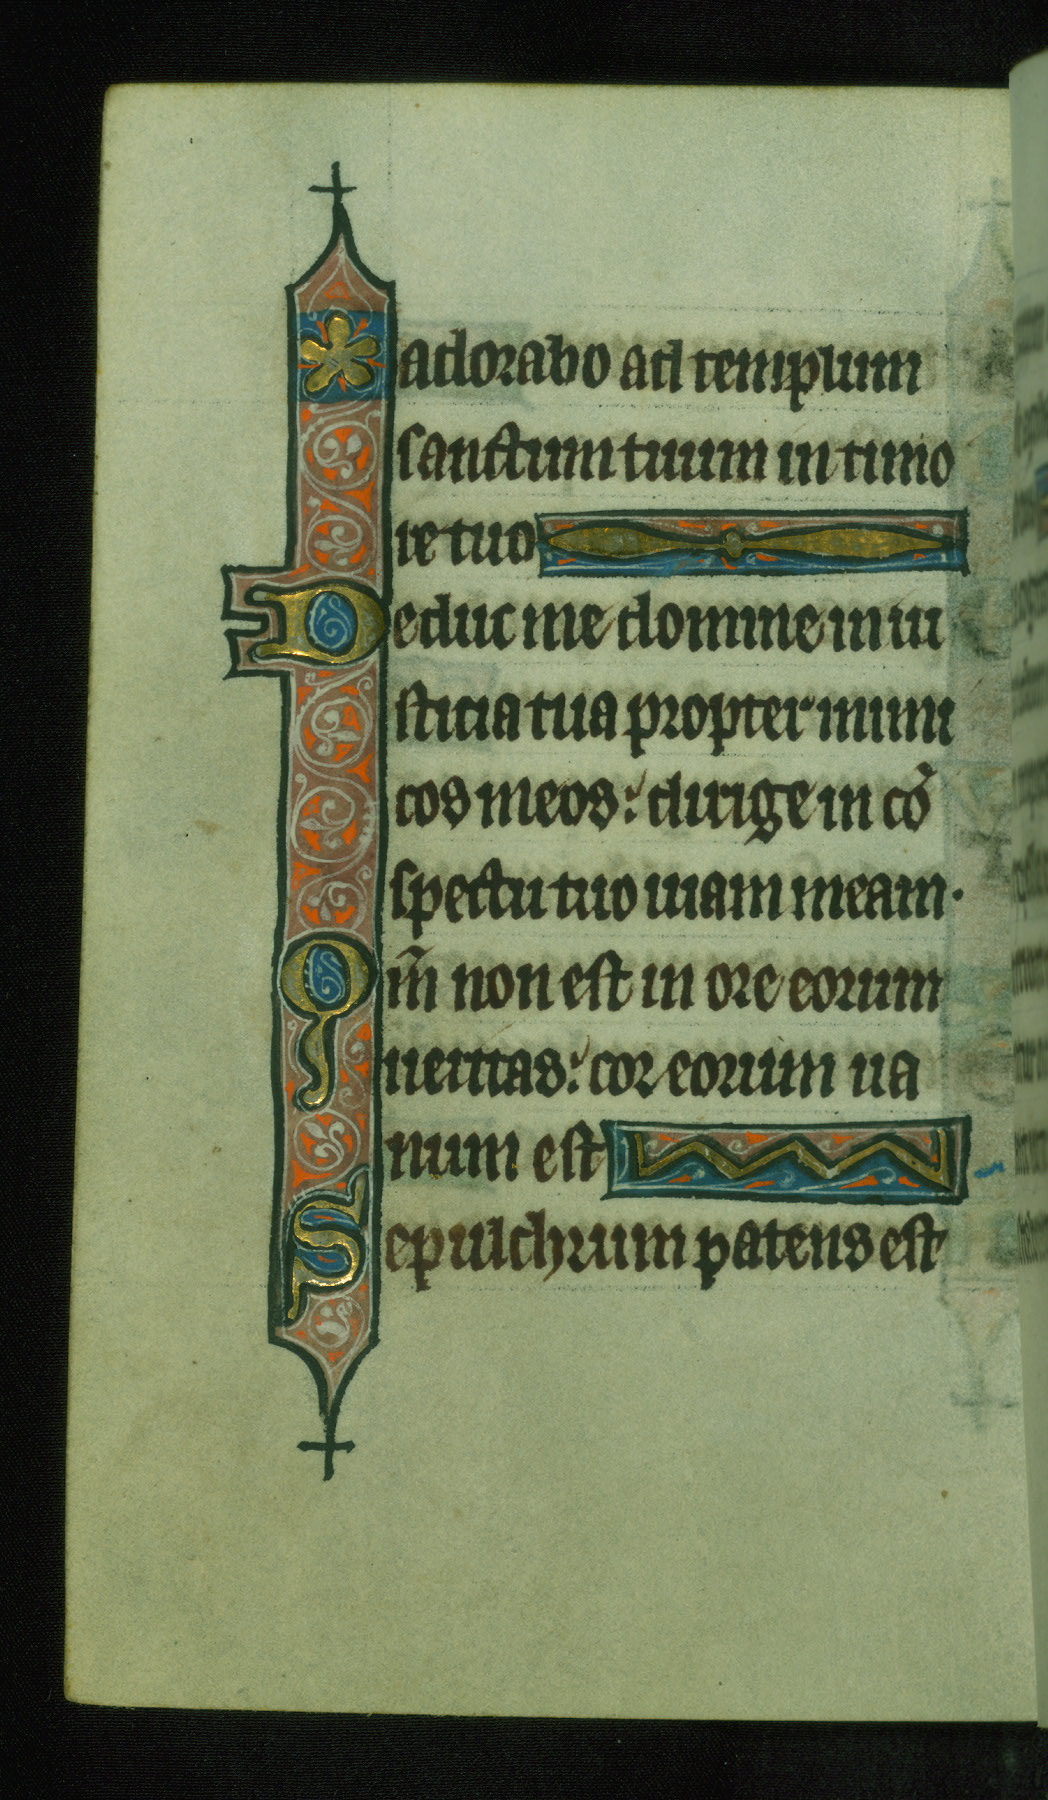 adorabo ad templum
sanctum tuum in timo
re tuo
Deduc me domine in iu
sticia tua propter inimi
cos meos: dirige in cō
spectu tuo uiam meam·
Qm̄ non est in ore eorum
ueritas: cor eorum ua
num est
Sepulchrum patens est